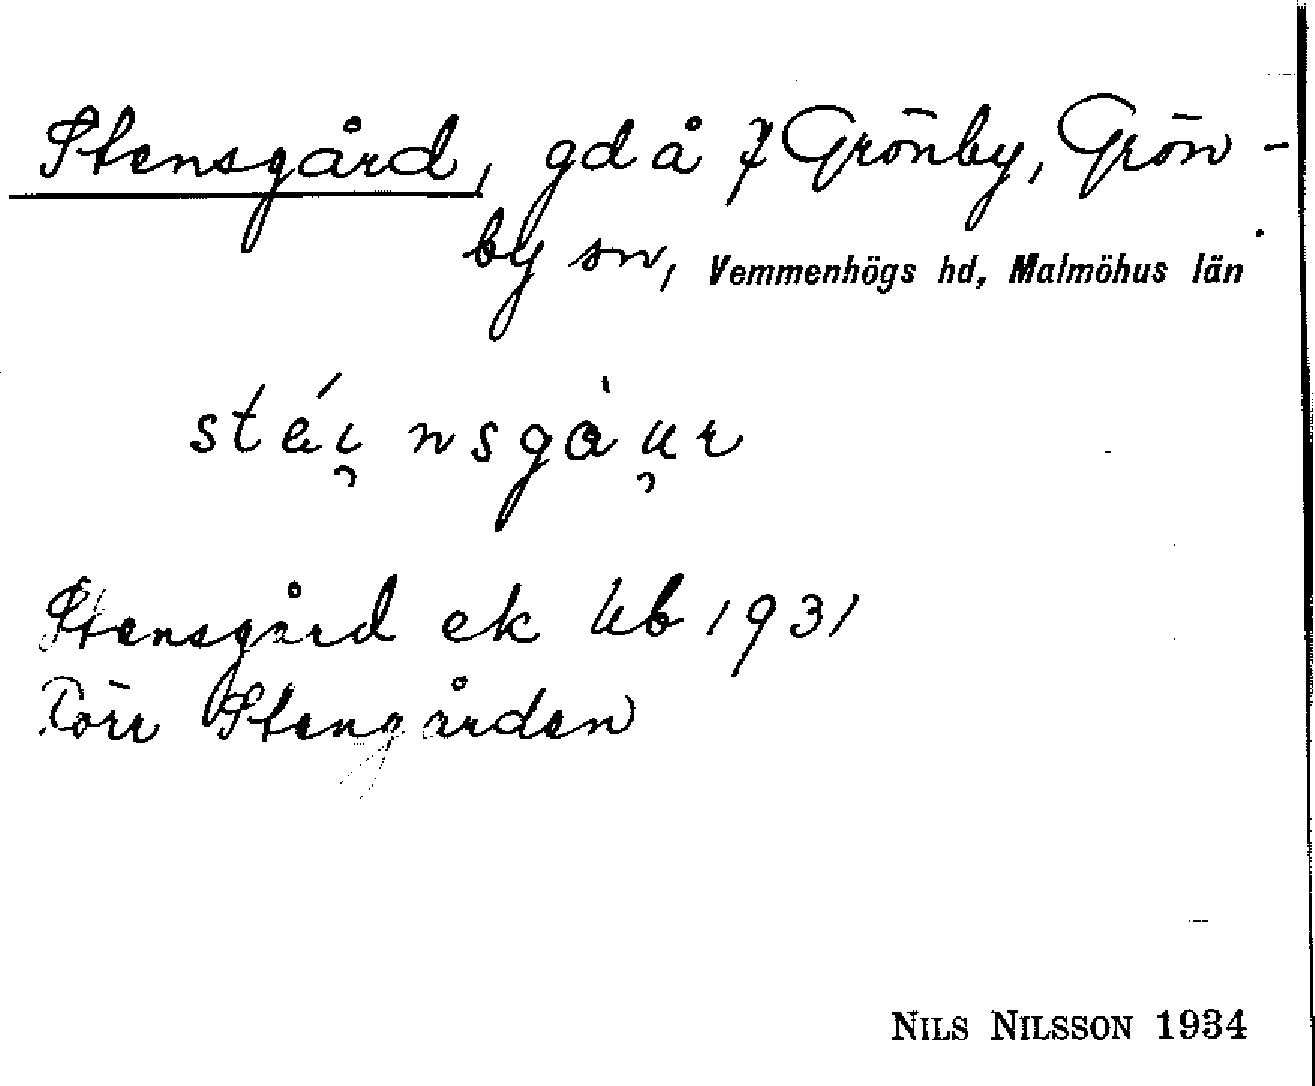 Stensgård, gd å 7 Grönby, Grön-
by sn, Vemmenhögs hd, Malmöhus län
stéi̯nsgàu̯r
Stensgård ek Ub 1931
Förr Stengården
NILS NILSSON 1934